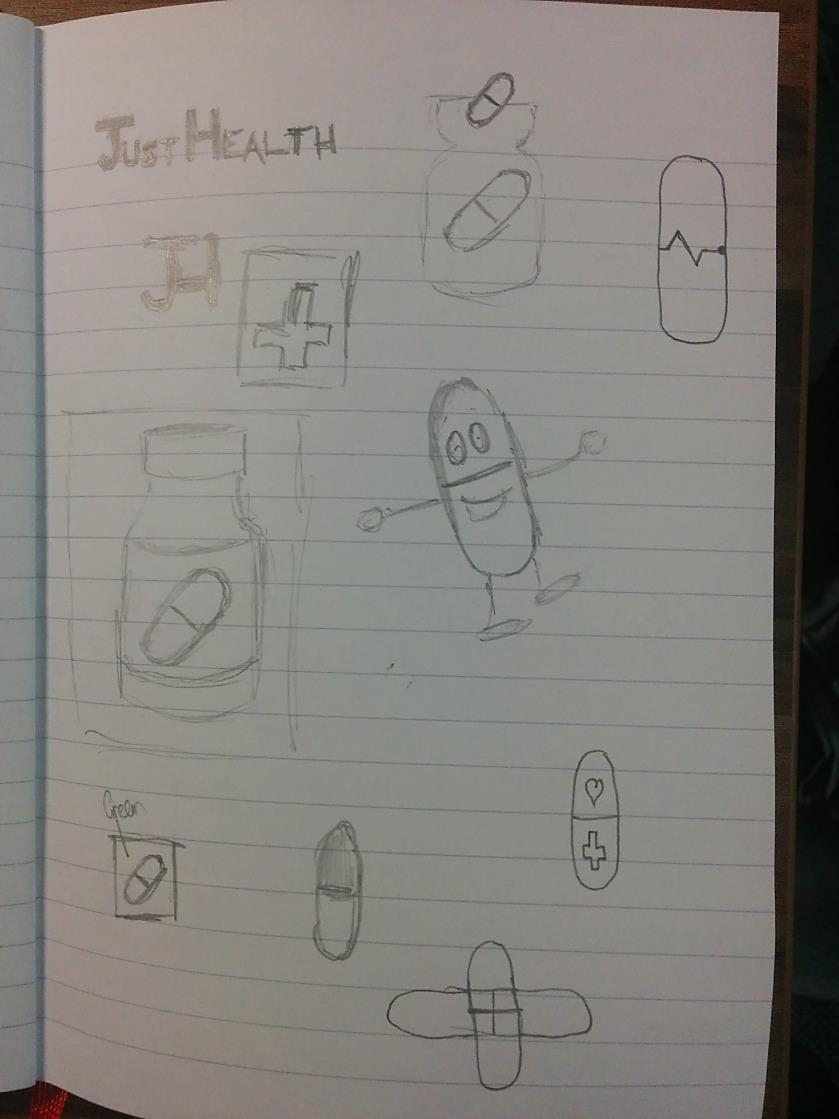 JUST HEALTH
JH
Green